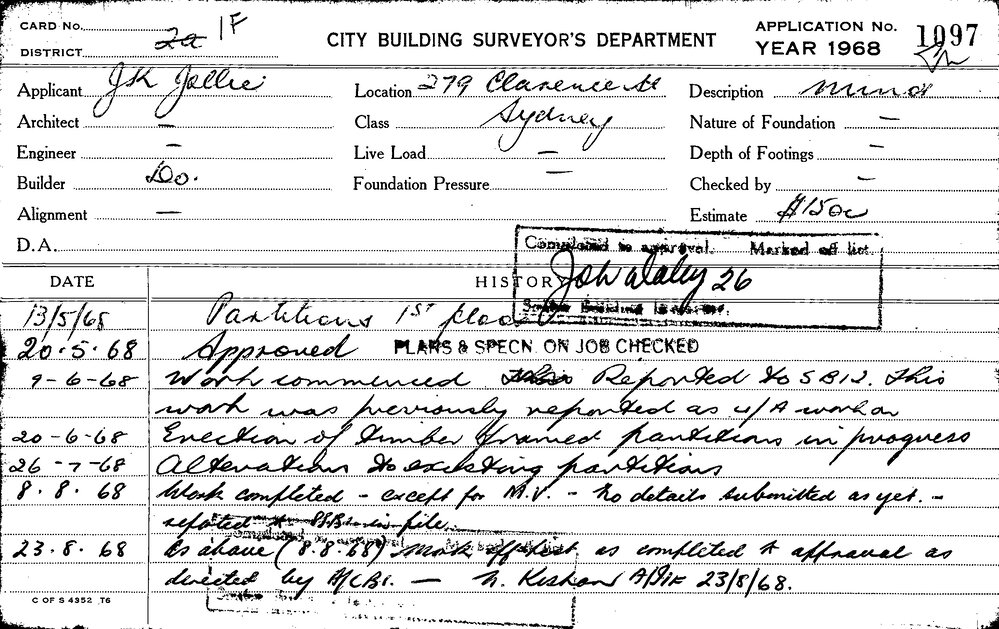 CARD No. 2a 1F
DISTRICT
CITY BUILDING SURVEYOR'S DEPARTMENT
APPLICATION No. 1097
YEAR 1968
Applicant JSK Jollie
Location 279 Clarence St
Description Minor
Architect —
Class Sydney
Nature of Foundation —
Engineer —
Live Load —
Depth of Footings —
Builder Do.
Foundation Pressure —
Checked by —
Alignment —
Estimate $150
D.A.
Completed to approval. Marked off list.
26
Building Inspector.
DATE HISTORY
13/5/68 Partitions 1ST floor
20.5.68 Approved PLANS & SPECN. ON JOB CHECKED
9-6-68 Work commenced Reported to SB12. This
work was previously reported as U/A work on
20-6-68 Erection of timber framed partitions in progress
26-7-68 Alterations to existing partitions
8.8.68 Work completed - except for M.V. - No details submitted as yet. -
in file.
23.8.68 As above (8.8.68) Mark off list as completed to approval as
directed by A/CBI. — N. 23/8/68.
C OF S 4352 T6